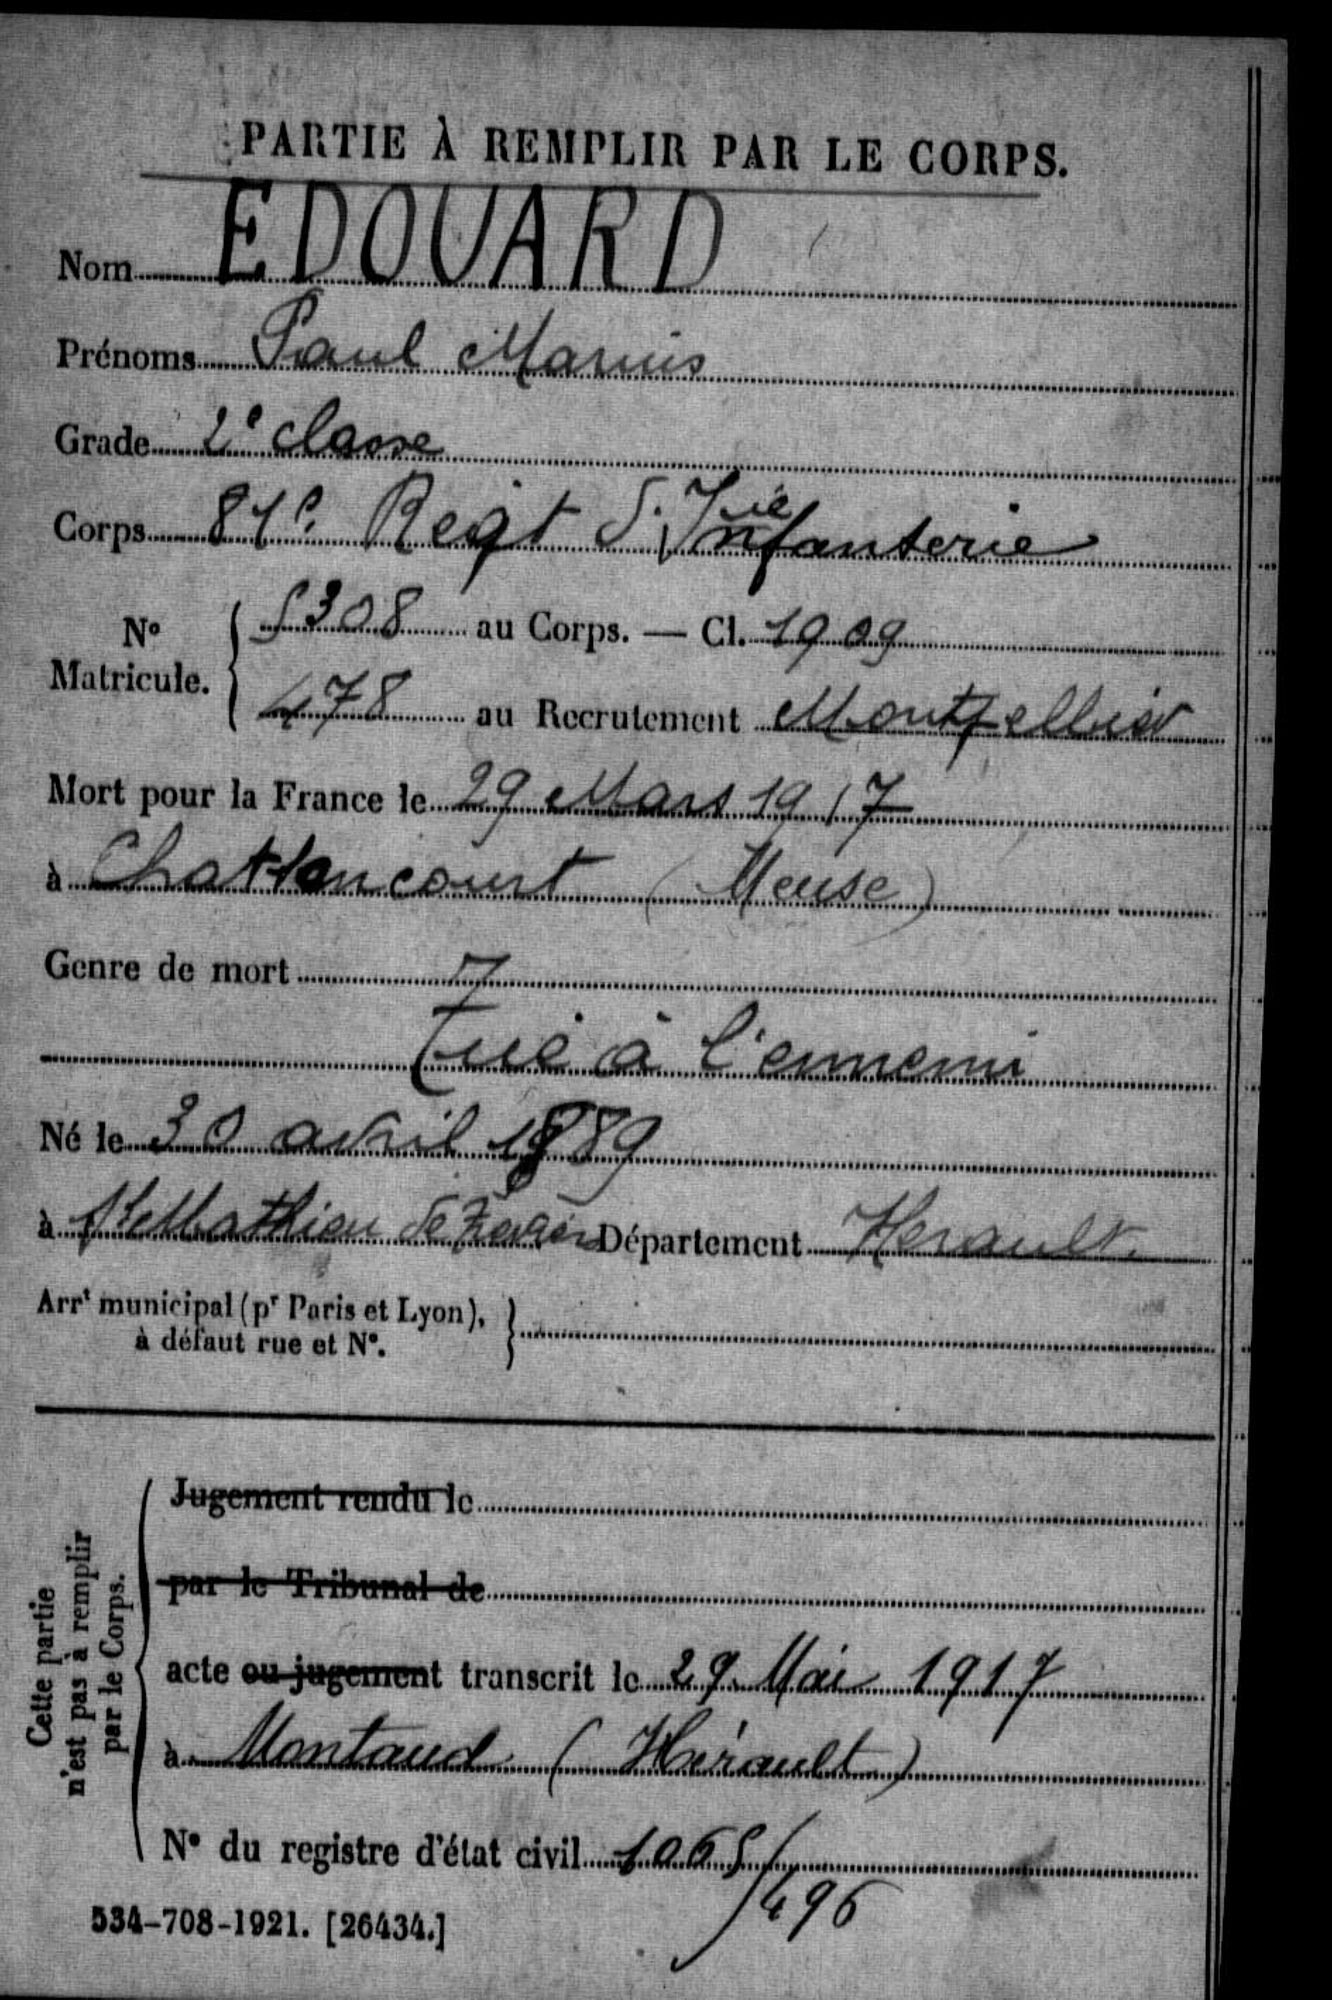 PARTIE À REMPLIR PAR LE CORPS.
Nom EDOUARD
Prénoms Paul Marius
Grade 2e classe
Corps 81e Regt d'Infanterie
No Matricule. 5308 au Corps. — Cl. 1909
478 au Recrutement Montpellier
Mort pour la France le 29 Mars 1917
à Chattancourt (Meuse)
Genre de mort
Tué à l'ennemi
Né le 30 avril 1889
à St Mathieu de Département Herault.
Arrt municipal (pr Paris et Lyon),
à défaut rue et No.
Jugement rendu le
par le Tribunal de
acte ou jugement transcrit le 29 Mai 1917
à Montaud (Hérault)
No du registre d'état civil 1065/496
Cette partie
n'est pas à remplir
par le Corps.
534-708-1921. [26434.]